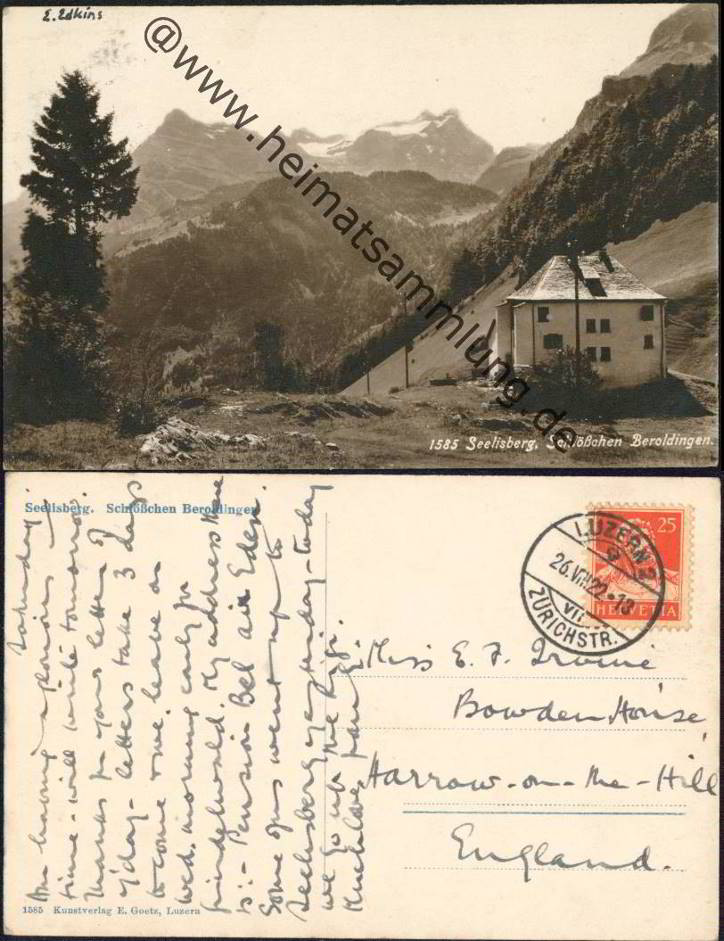 E. Edkins
@www.heimatsammlung.de
1585 Seelisberg. Schlößchen Beroldingen.
Seelisberg. Schlößchen Beroldingen
Saturday.
Am having a glorious
time - will write tomorrow.
Thanks for your letter of
y'day - letters take 3 days
to come & we leave on
Wed. morning early for
Grindelwald. My address there
is:- Pension Bel air Eden.
Some of us went up to
Seelisberg yesterday - today
we go up the Rigi.
Much love from
1585 Kunstverlag E. Goetz, Luzern
25
HELVETIA
LUZERN 2
26. VIII 22
VII
ZÜRICHSTR.
Miss E. F. Irvine
Bowden House,
Harrow-on-the-Hill
England.